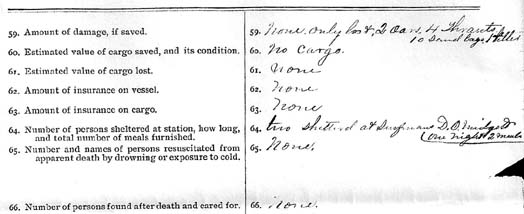 59. Amount of damage, if saved. 59. None. only lost, 2 Oars, 4 Thwarts,
10 Sand bags, 1 tiller
60. Estimated value of cargo saved, and its condition. 60. No Cargo.
61. Estimated value of cargo lost. 61. None
62. Amount of insurance on vessel. 62. None
63. Amount of insurance on cargo. 63. None
64. Number of persons sheltered at station, how long, 64. two sheltered at Surfmans D. O.
and total number of meals furnished. (one night 2 meals
65. Number and names of persons resuscitated from 65. None.
apparent death by drowning or exposure to cold.
66. Number of persons found after death and cared for. 66. None.